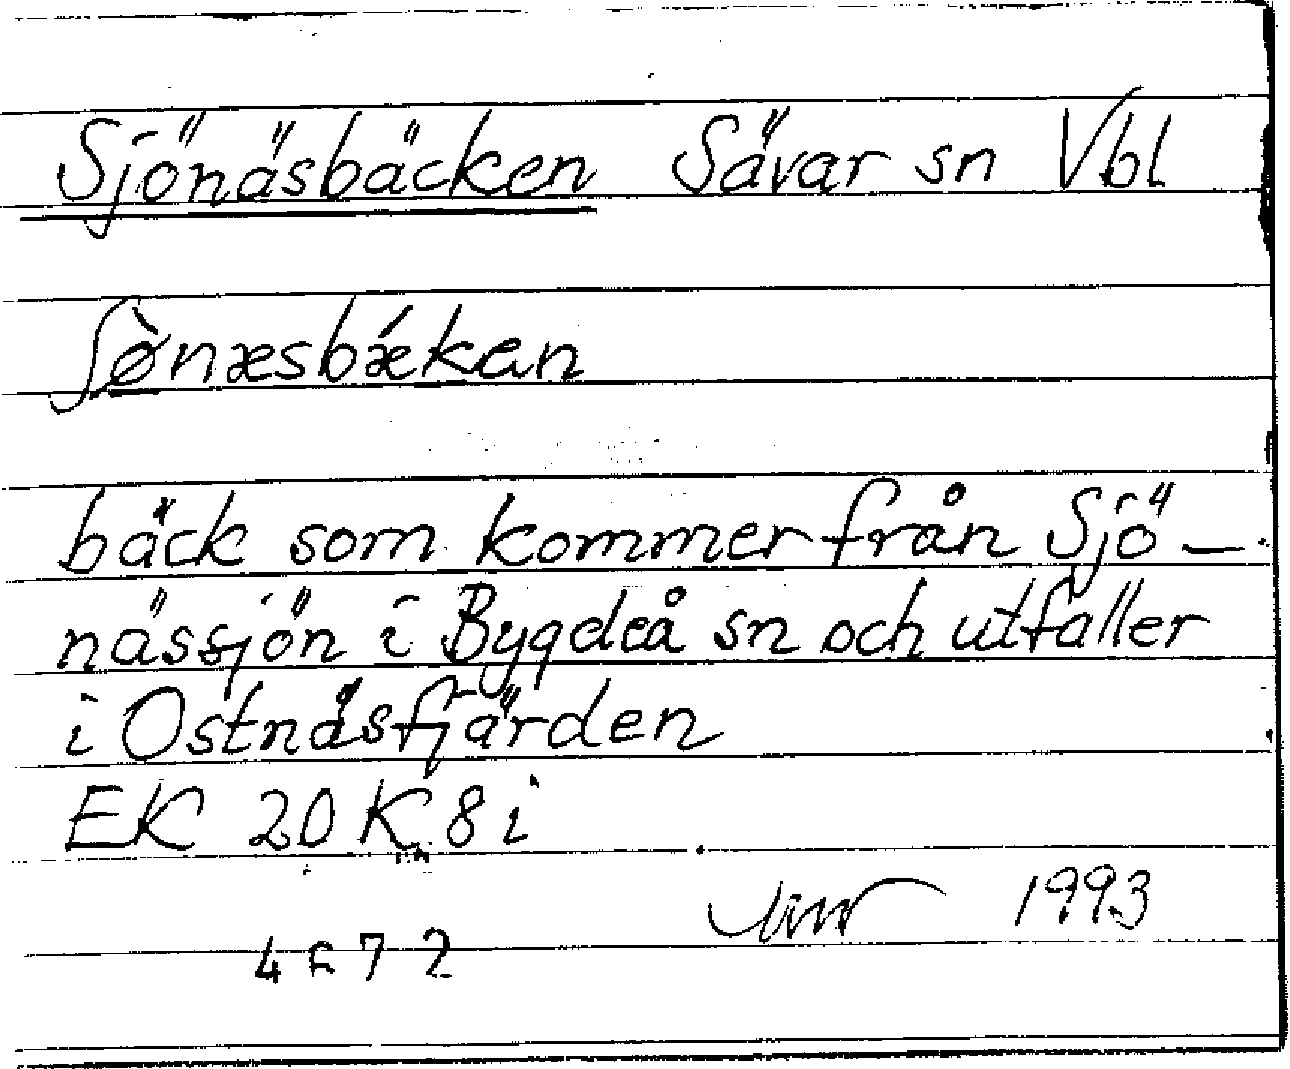 Sjönäsbäcken Sävar sn Vbl
ʃø̀næsbǽkan
bäck som kommer från Sjö-
nässjön i Bygdeå sn och utfaller
i Ostnäsfjärden
EK 20 K 8 i
1993